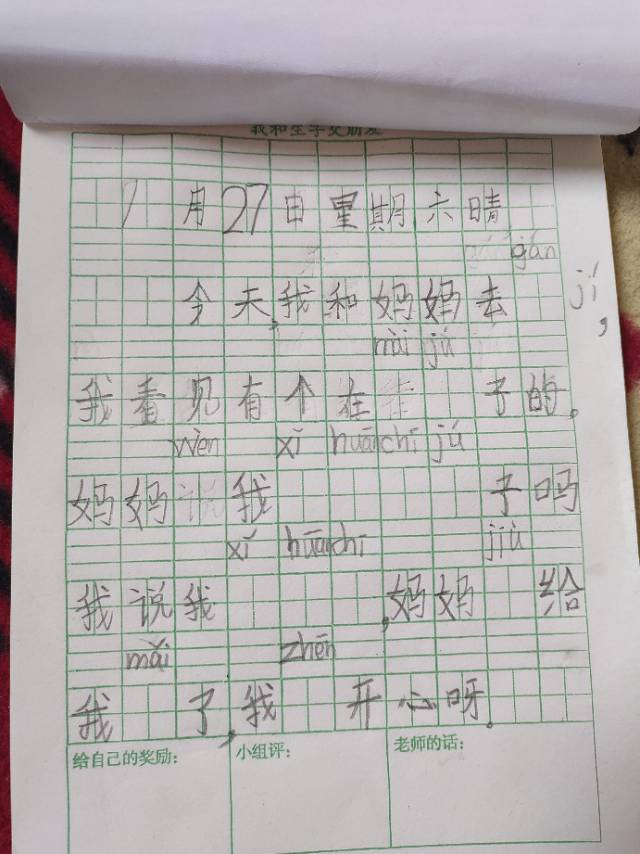 我和生字交朋友
1月27日星期六晴
gǎn jí,
今天,我和妈妈去
mài jú
我看见有个在 子的。
wèn xǐ huān chī jú
妈妈 我 子吗
xǐ huān chī jiù
我说我 ,妈妈 给
mǎi zhēn
我 了,我 开心呀。
给自己的奖励: 小组评: 老师的话: